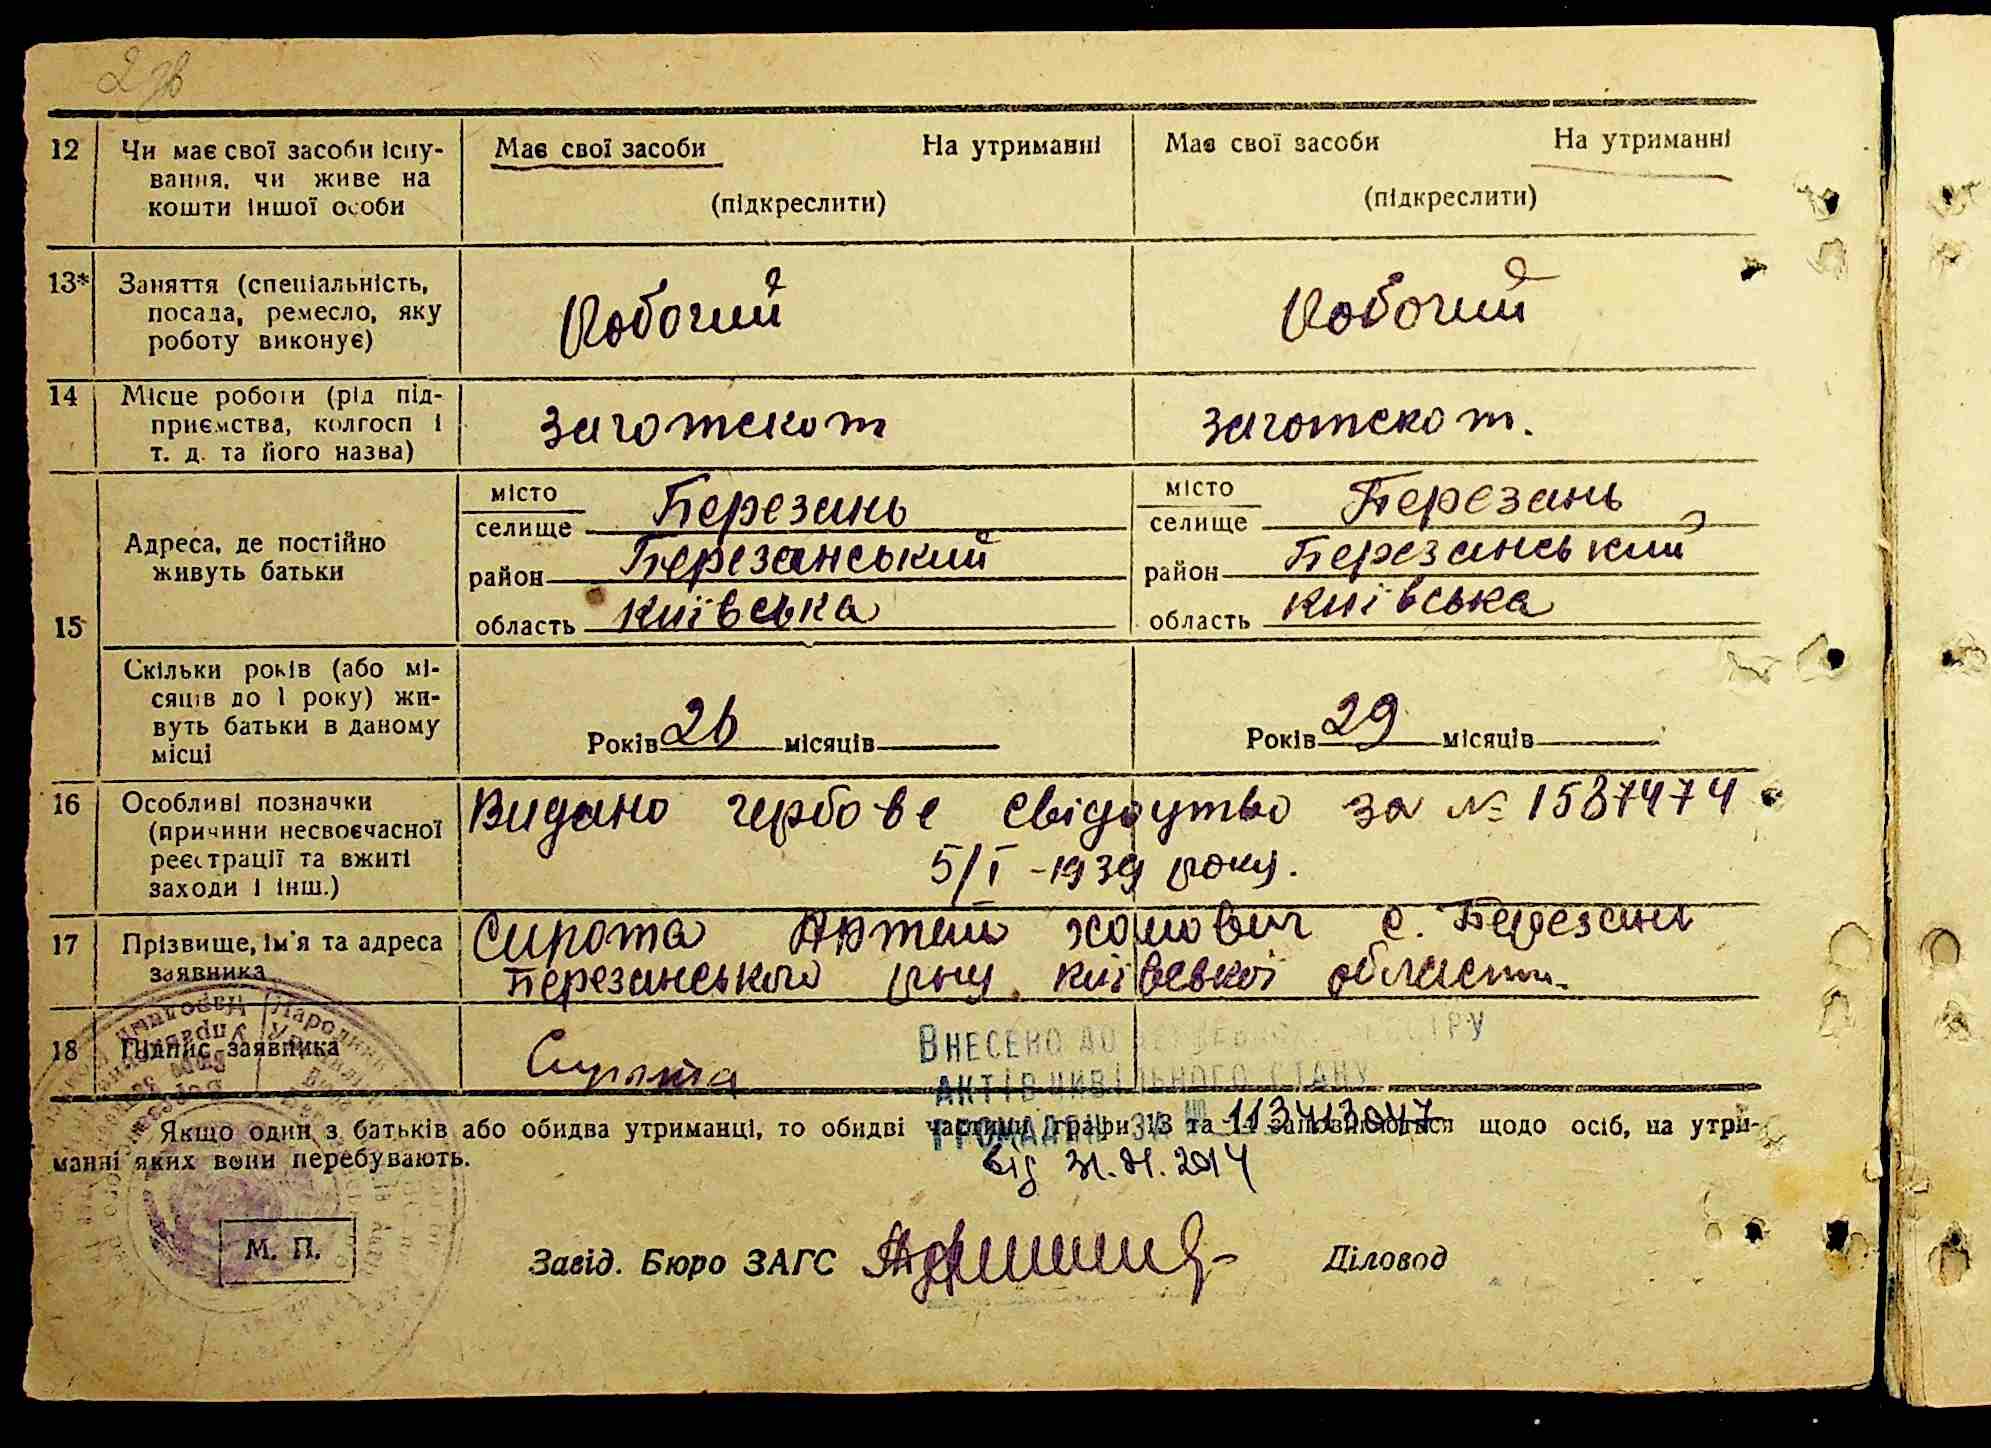 2 зв
12 Чи має свої засоби існу- Має свої засоби На утриманні Має свої засоби На утриманні
вання, чи живе на
кошти іншої особи (підкреслити) (підкреслити)
13* Заняття (спеціальність,
посада, ремесло, яку Робочий Робочий
роботу виконує)
14 Місце роботи (рід під-
приємства, колгосп і заготскот заготскот.
т. д. та його назва)
15 Адреса, де постійно
живуть батьки
місто Березань місто Березань
селище селище
район Березанський район Березанський
область київська область київська
Скільки років (або мі-
сяців до 1 року) жи-
вуть батьки в даному Років 26 місяців Років 29 місяців
місці
16 Особливі позначки Видано гербове свідоцтво за № 1587474
(причини несвоєчасної
реєстрації та вжиті 5/I -1939 року.
заходи і інш.)
17 Прізвище, ім'я та адреса Сирота Артем хомович с. Березань
заявника Березанського р-ну київської області.
18 Підпис заявника Сирота
Внесено до державного реєстру
актів цивільного стану
громадян за № 113413047
Якщо один з батьків або обидва утриманці, то обидві частини графи 13 та 14 заповнюються щодо осіб, на утри-
манні яких вони перебувають.
від 31.01.2014
М. П.
Завід. Бюро ЗАГС Діловод